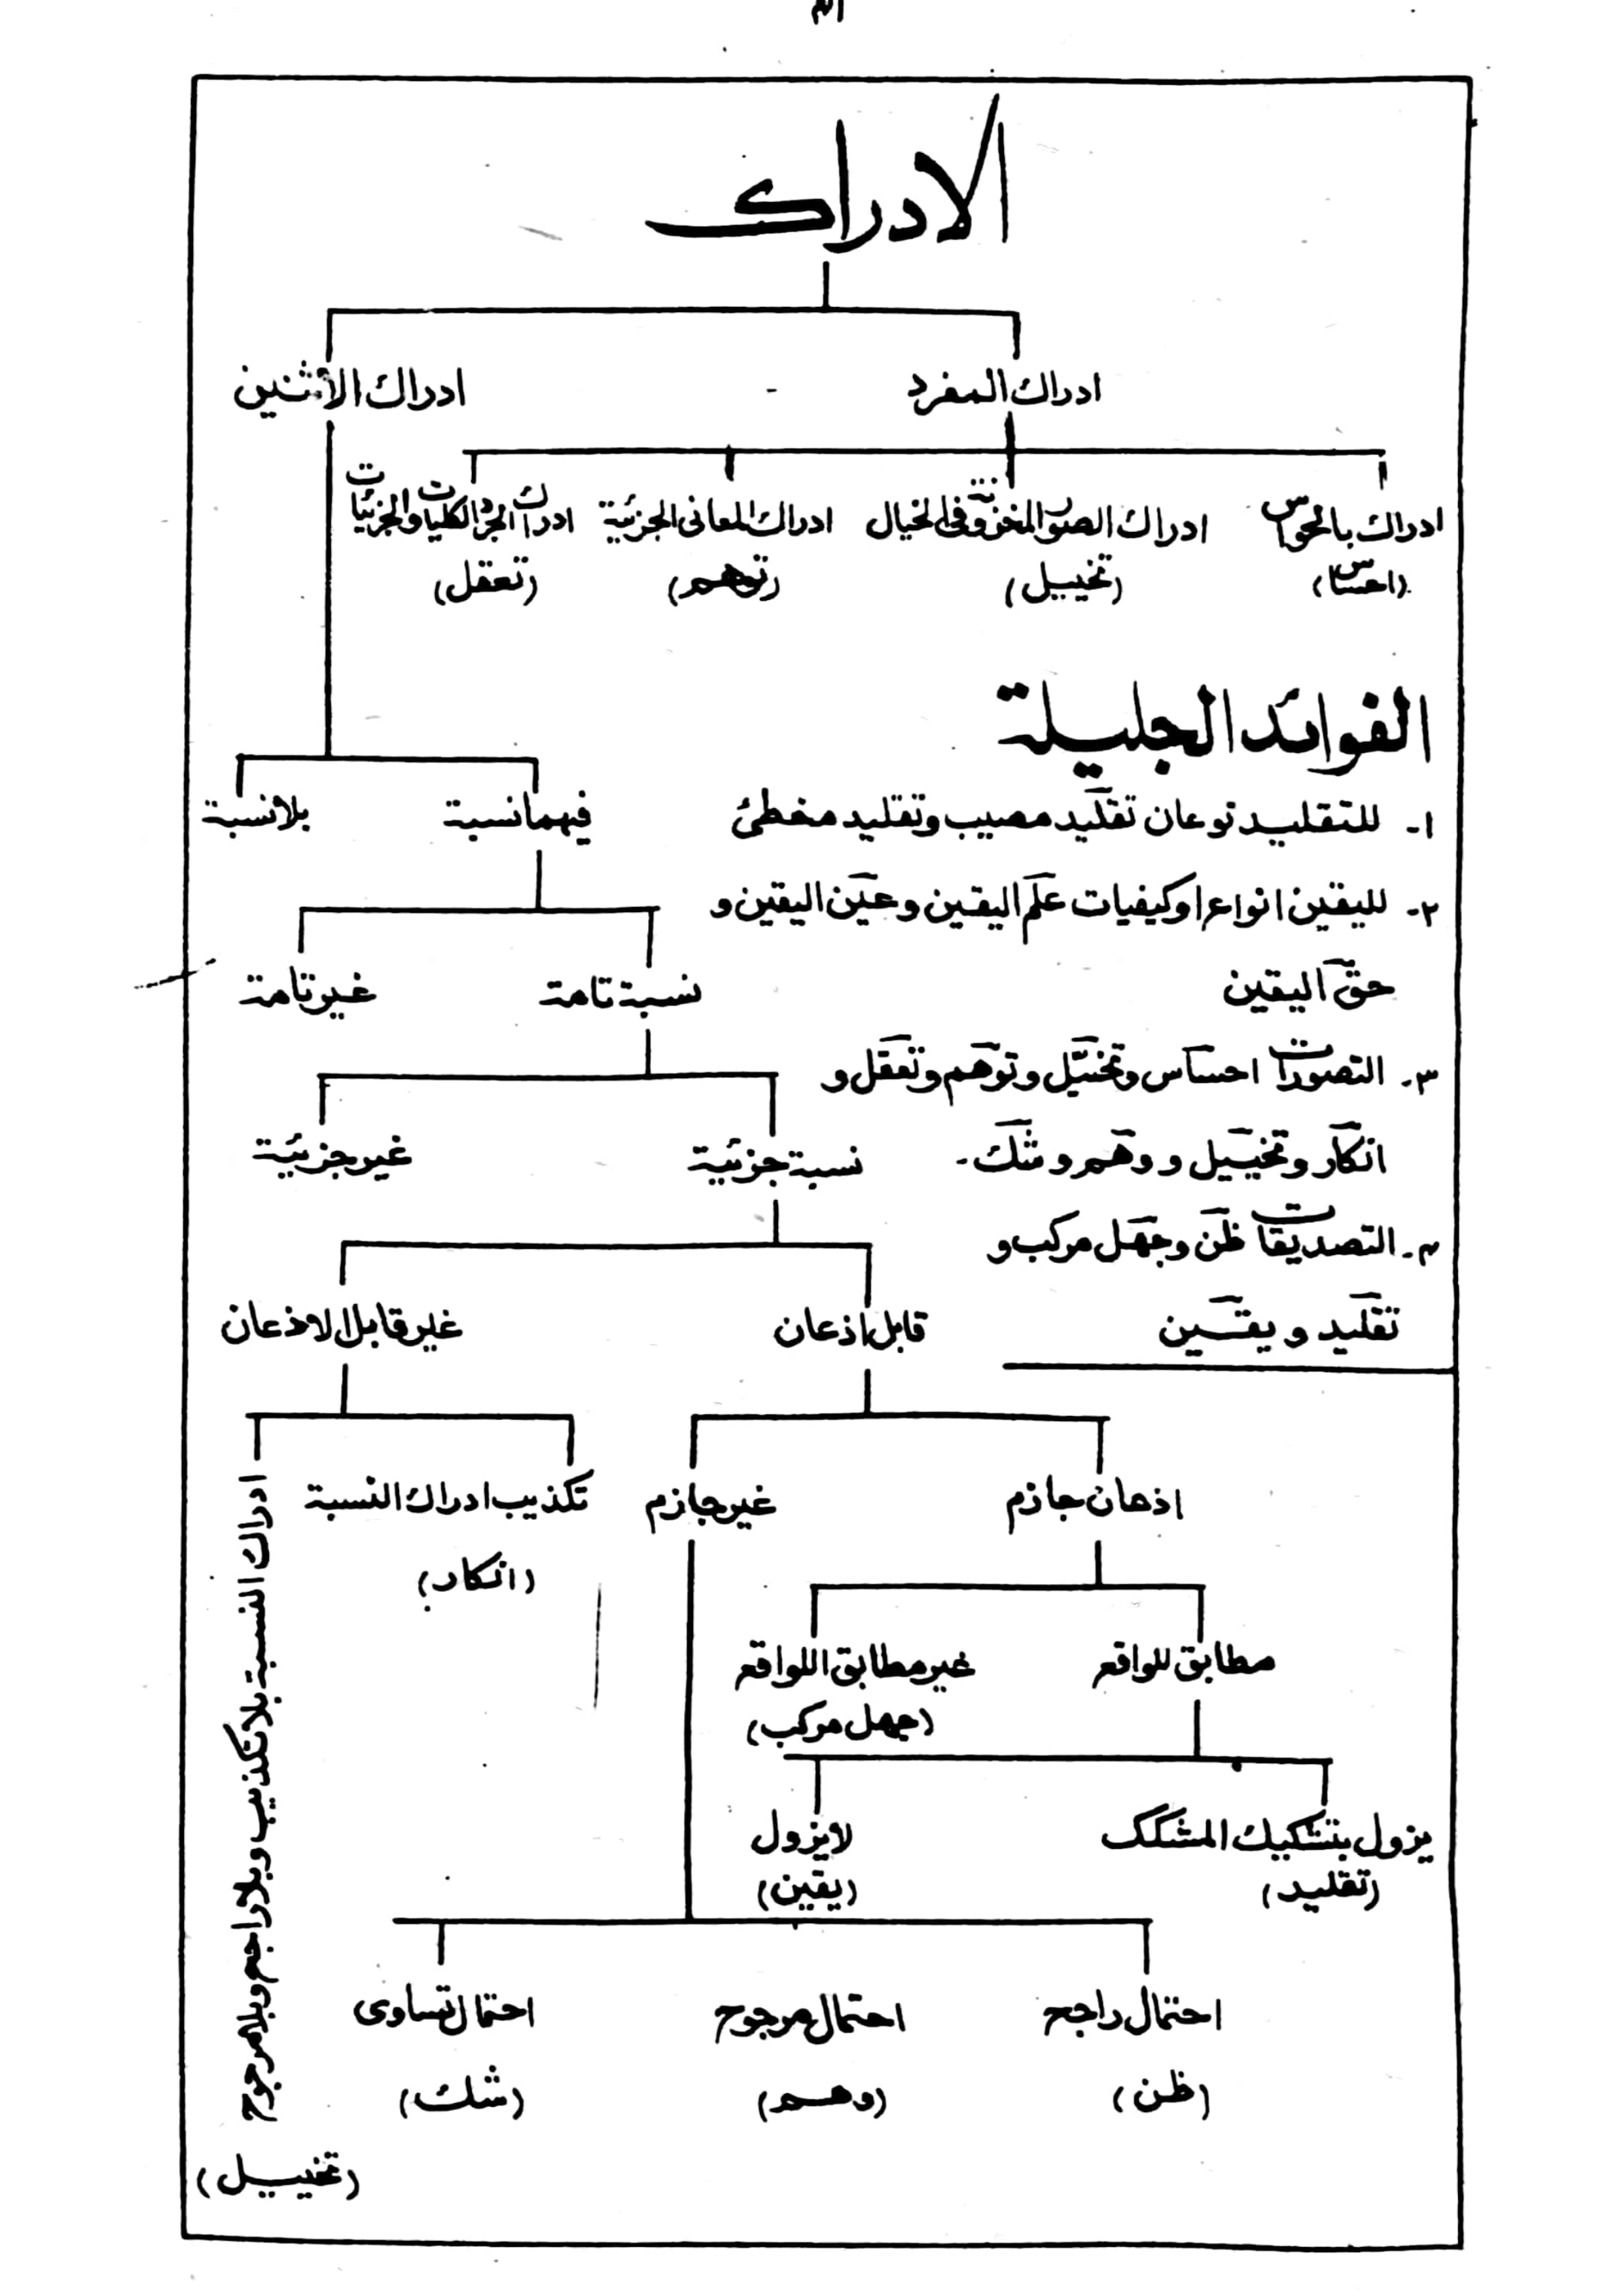 الادراك
ادراك المفرد
ادراك الأثنين
ادراك بالحواس
(احساس)
ادراك الصور المخزونة فى الخيال
(تخييل)
ادراك المعانى الجزئية
(توهم)
ادراك الكليات والجزئيات
(تعقل)
الفوائد الجليلة
١- للتقليد نوعان تقليد مصيب وتقليد مخطئ
٢- لليقين انواع او كيفيات علم اليقين وعين اليقين و
حق اليقين
٣- التصورات احساس وتخيّل وتوهم وتعقل و
انكار وتخييل و وهم و شك -
٤- التصديقات ظن وجهل مركب و
تقليد و يقين
فيهما نسبة
بلا نسبة
نسبة تامة
غير تامة
نسبة جزئية
غير جزئية
قابل اذعان
غير قابل الاذعان
اذعان جازم
غير جازم
تكذيب ادراك النسبة
(انكار)
ادراك النسبة بلا تكذيب وبلا راجح وبلا مرجوح
(تخييل)
مطابق للواقع
غير مطابق اللواقع
(جهل مركب)
يزول بتشكيك المشكك
(تقليد)
لايزول
(يقين)
احتمال راجح
(ظن)
احتمال مرجوح
(وهم)
احتمال تساوى
(شك)